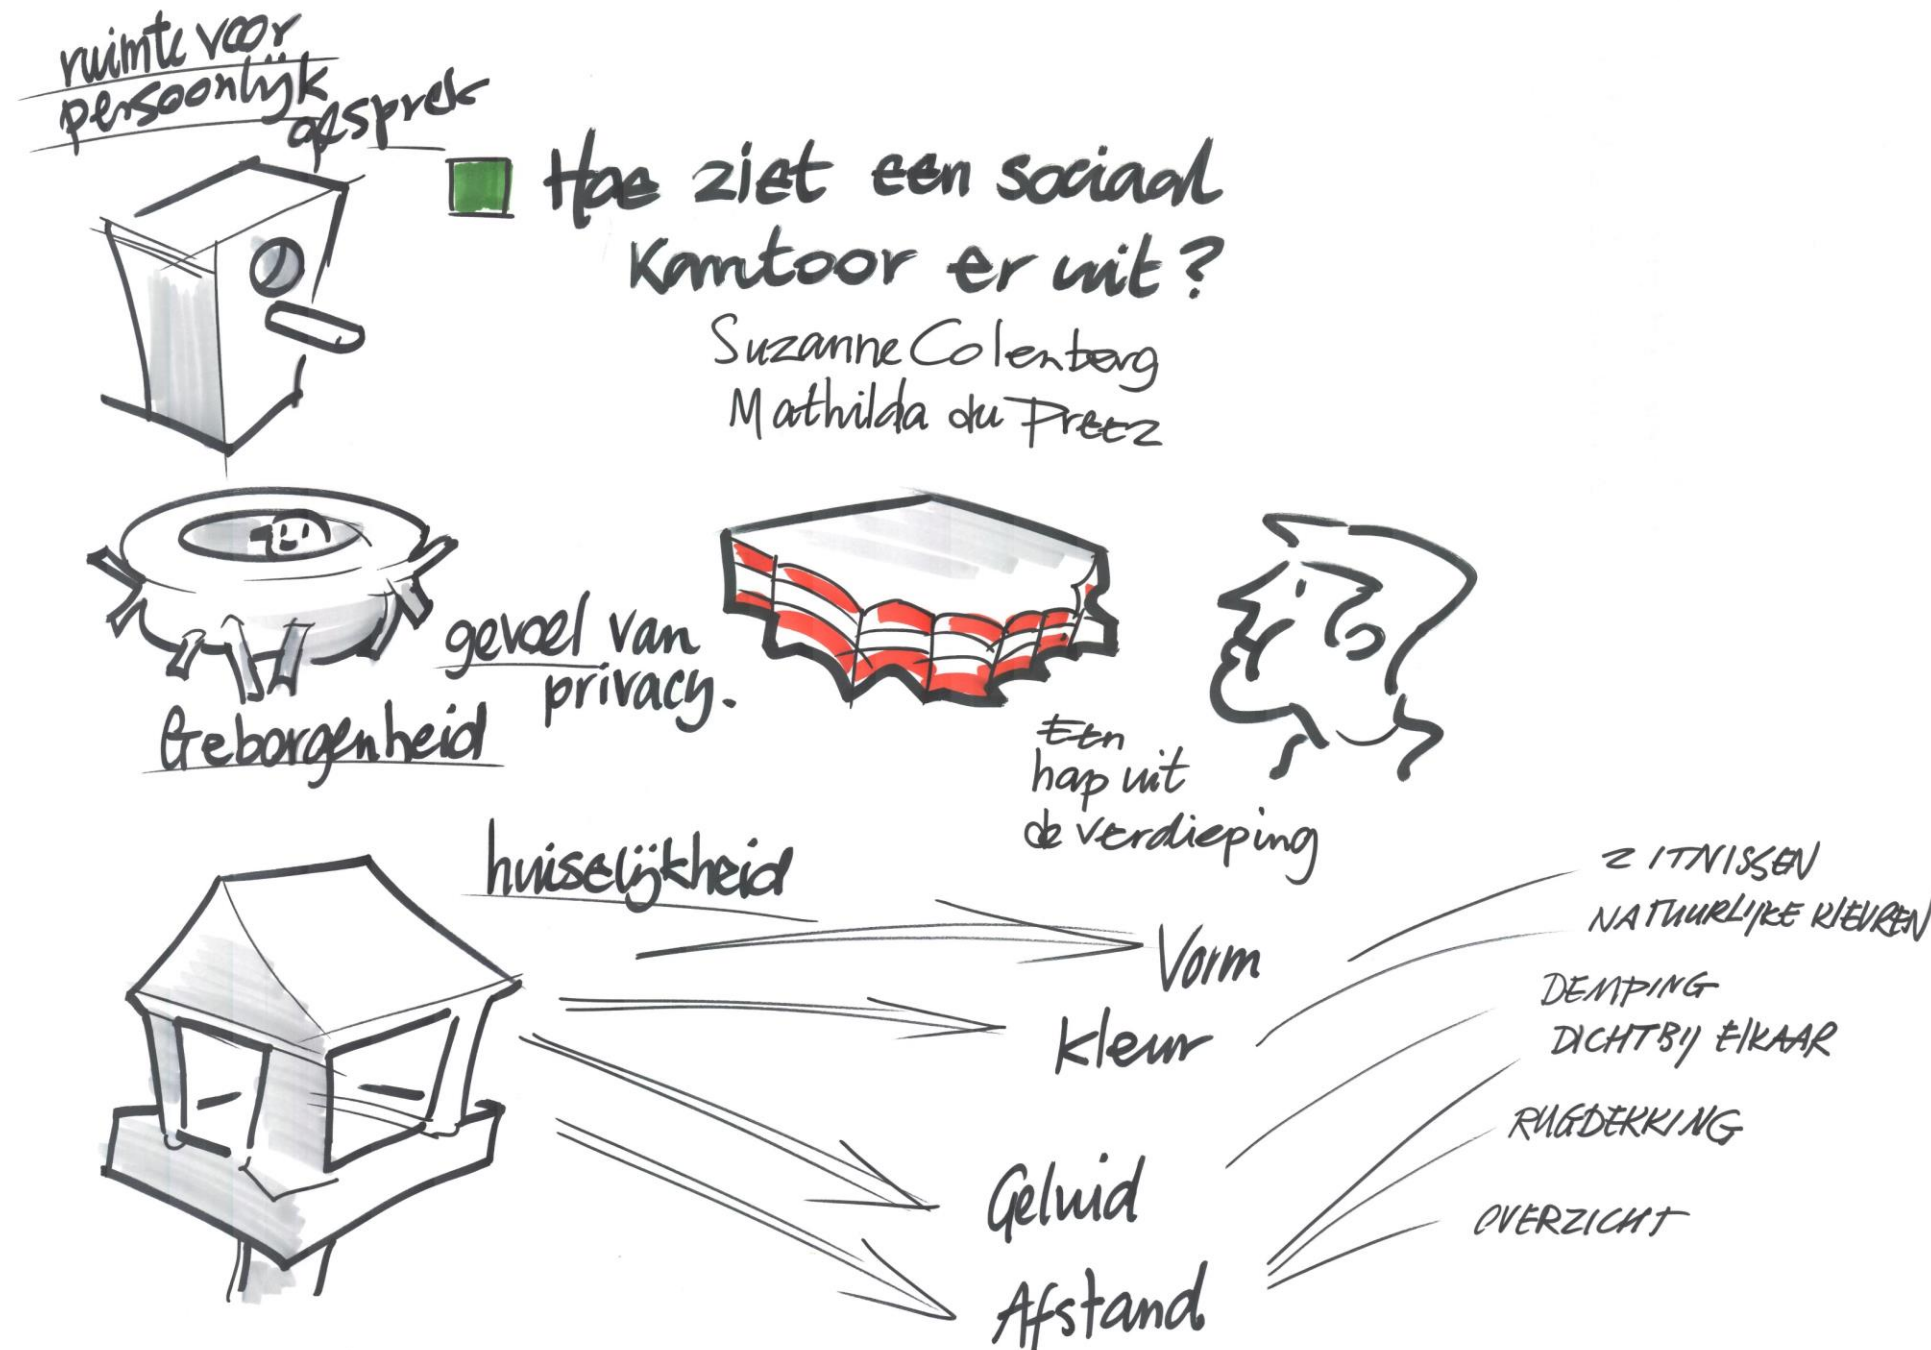 ruimte voor
persoonlijk
gesprek
Hoe ziet een sociaal
Kantoor er uit?
Suzanne Colenberg
Mathilda du Preez
gevoel van
privacy.
Geborgenheid
Een
hap uit
de verdieping
huiselijkheid
Vorm
Kleur
Geluid
Afstand
ZITNISSEN
NATUURLIJKE KLEUREN
DEMPING
DICHTBIJ ElKAAR
RUGDEKKING
OVERZICHT